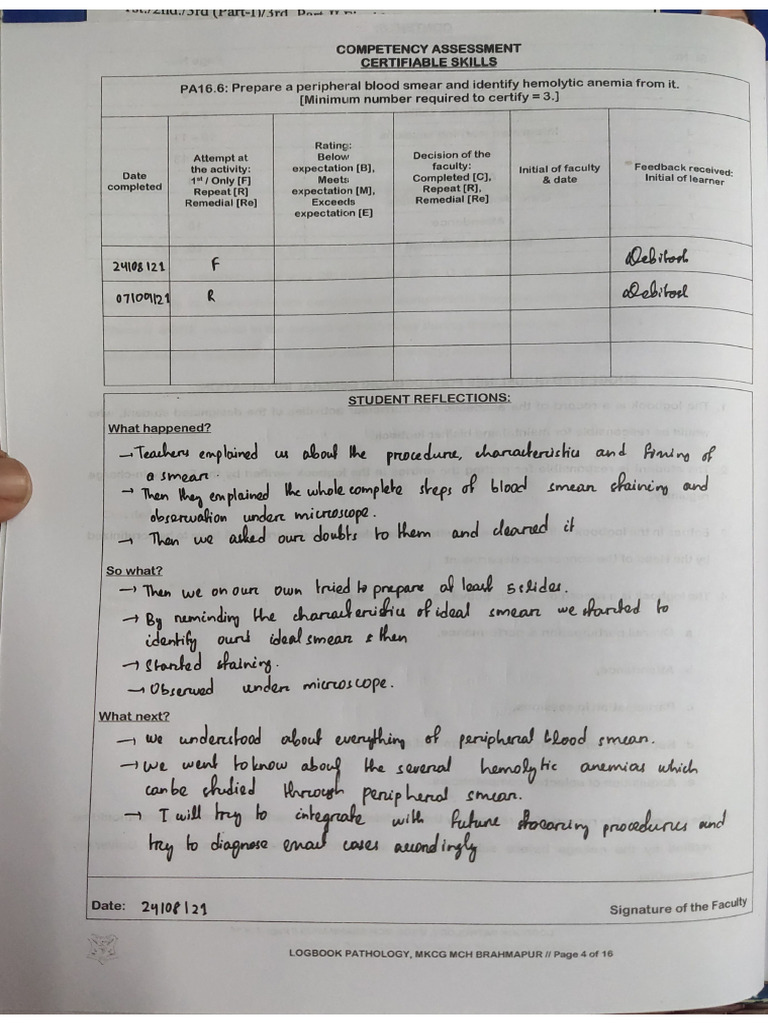 1st./2nd./3rd (Part-I)/3rd. Part-II
COMPETENCY ASSESSMENT
CERTIFIABLE SKILLS
PA16.6: Prepare a peripheral blood smear and identify hemolytic anemia from it.
[Minimum number required to certify = 3.]
Date
completed
Attempt at
the activity:
1st / Only [F]
Repeat [R]
Remedial [Re]
Rating:
Below
expectation [B],
Meets
expectation [M],
Exceeds
expectation [E]
Decision of the
faculty:
Completed [C],
Repeat [R],
Remedial [Re]
Initial of faculty
& date
Feedback received:
Initial of learner
24/08/21 F
07/09/21 R
STUDENT REFLECTIONS:
What happened?
→ Teachers explained us about the procedure, characteristics and fixing of
a smear.
→ Then they explained the whole complete steps of blood smear staining and
observation under microscope.
→ Then we asked our doubts to them and cleared it
So what?
→ Then we on our own tried to prepare at least 5 slides.
→ By reminding the characteristics of ideal smear we started to
identify ours ideal smear & then
→ Started staining.
→ Observed under microscope.
What next?
→ we understood about everything of peripheral blood smear.
→ we went to know about the several hemolytic anemias which
can be studied through peripheral smear.
→ I will try to integrate with future procedures and
try to diagnose cases accordingly
Date: 24/08/21
Signature of the Faculty
LOGBOOK PATHOLOGY, MKCG MCH BRAHMAPUR // Page 4 of 16